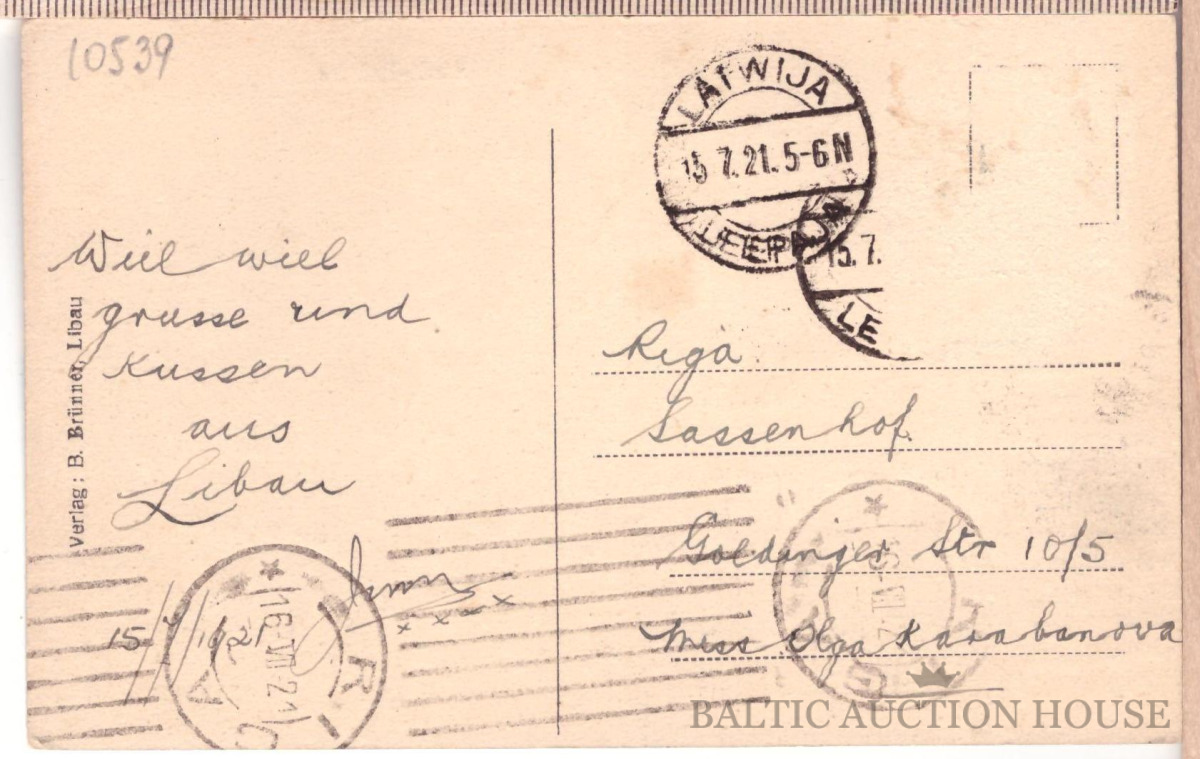 10539
LATWIJA
15 7.21.5-6N
LEEPAJA
15.7.
LE
Wiel wiel
grusse und
Kussen
aus
Libau
15/7/1921
Verlag: B. Brünner, Libau
Riga
Sassenhof.
Goldinger Str 10/5
Miss Olga Karabanova
RIGA
16.VII.21
BALTIC AUCTION HOUSE